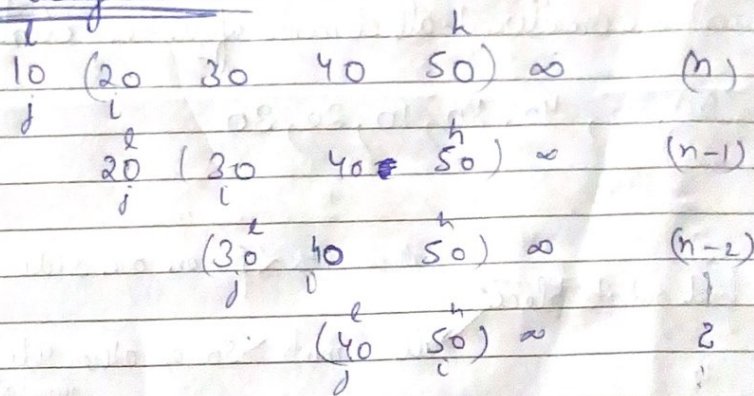 l h
10 (20 30 40 50) ∞ (n)
j i
l h
20 (30 40 50) ∞ (n-1)
j i
l h
(30 40 50) ∞ (n-2)
j i
l h
(40 50) ∞ 2
j i